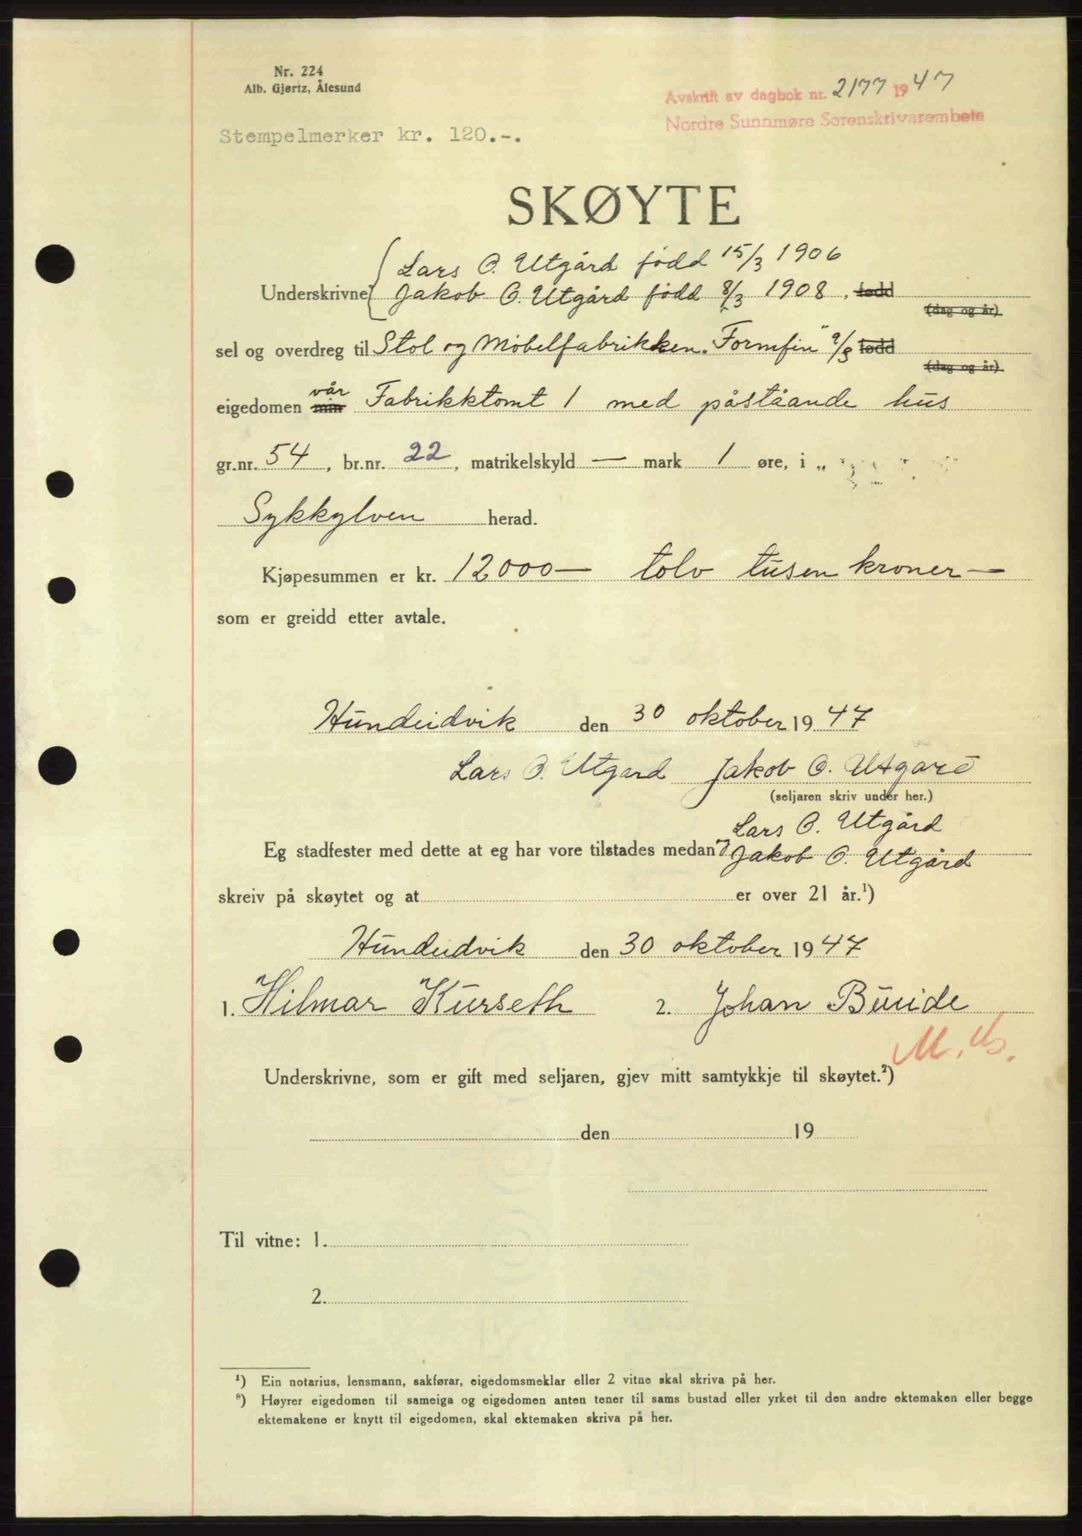 Nr. 224
Alb. Gjørtz, Ålesund
Avskrift av dagbok nr. 2177 1947
Nordre Sunnmøre Sorenskrivarembete
Stempelmerker kr. 120.-.
SKØYTE
Lars O. Utgård född 15/3 1906
Underskrivne Jakob O. Utgård född 8/3 1908. fødd
(dag og år).
sel og overdreg til Stol og Møbelfabrikken "Formfin" a/s fødd
(dag og år).
vår
eigedomen min Fabrikktomt 1 med påståande hus
gr.nr. 54, br.nr. 22, matrikelskyld — mark 1 øre, i
Sykkylven herad.
Kjøpesummen er kr. 12000— tolv tusen kroner—
som er greidd etter avtale.
Hundeidvik den 30 oktober 1947
Lars O. Utgard Jakob O. Utgård
(seljaren skriv under her.)
Lars O. Utgård
Eg stadfester med dette at eg har vore tilstades medan Jakob O. Utgård
skreiv på skøytet og at er over 21 år.¹)
Hundeidvik den 30 oktober 1947
1. Hilmar Kurseth 2. Johan Buside
Underskrivne, som er gift med seljaren, gjev mitt samtykkje til skøytet.²)
den 19
Til vitne: 1.
2.
¹) Ein notarius, lensmann, sakførar, eigedomsmeklar eller 2 vitne skal skriva på her.
²) Høyrer eigedomen til sameiga og eigedomen anten tener til sams bustad eller yrket til den andre ektemaken eller begge
ektemakene er knytt til eigedomen, skal ektemaken skriva på her.